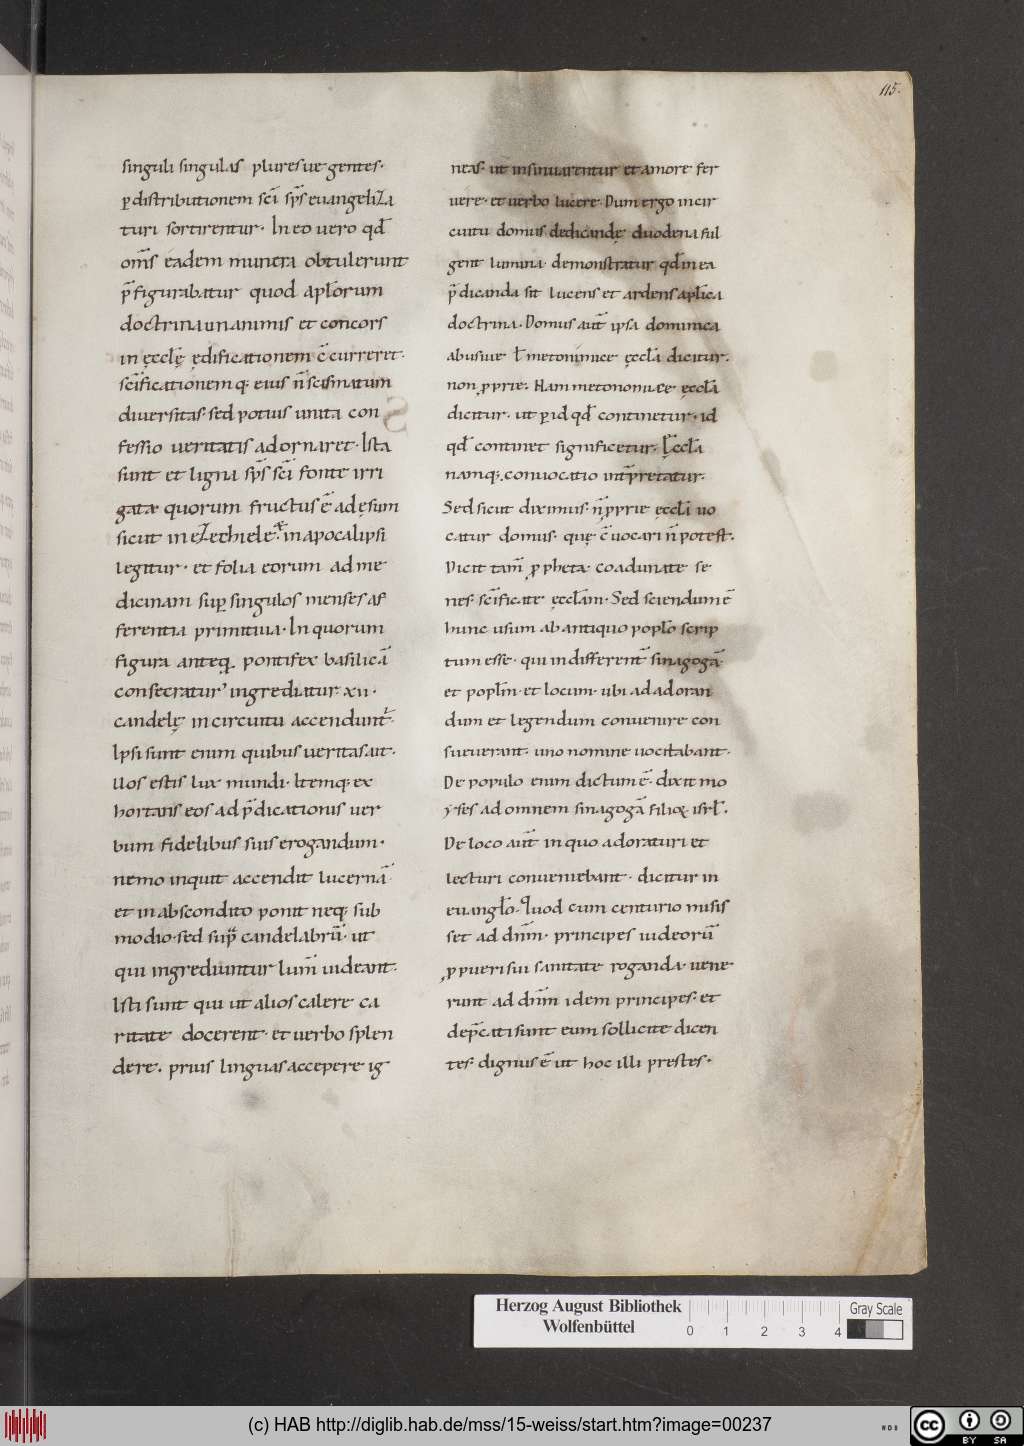 115.
singuli singulas pluresue gentes·
p̱ distributionem sc̄i sp̄s euangeliza
turi sortirentur· In eo uero qđ
om̄s eadem munera obtulerunt
p̄figurabatur quod apl̄orum
doctrina unanimis et concors
in ęccl̄ę ędificationem c̄curreret·
sc̄ificationemq; eius n̄ scismatum
diuersitas· sed potius unita con
fessio ueritatis adornaret· Ista
sunt et ligna sp̄s sc̄i fonte irri
gatæ quorum fructus ē ad ęsum
sicut in ezechiele· in apocalipsi
legitur· et folia eorum ad me
dicinam sup̱ singulos menses af
ferentia primitiua· In quorum
figura anteq̄ pontifex basilicā
consecratur' ingrediatur· xii·
candelę in circuitu accendunt̄·
Ipsi sunt enim quibus ueritas ait·
Uos estis lux mundi· Itemq; ex
hortans eos ad p̄dicationis uer
bum fidelibus suis erogandum·
nemo inquit accendit lucernā
et in abscondito ponit neq; sub
modio· sed sup̄ candelabrū· ut
qui ingrediuntur lum̄ uideant·
Isti sunt qui ut alios calere ca
ritate docerent· et uerbo splen
dere· prius linguas accepere ig
neas· ut insinuarentur et amore fer
uere· et uerbo lucere· Dum ergo in cir
cuitu domus dedicandę duodena ful
gent lumina· demonstratur qđ in ea
p̄dicanda sit lucens et ardens apl̄ica
doctrina· Domus aut̄ ipsa dominica
abusiue ł metonimice ęccl̄a dicitur·
non ꝓprie· Nam metonomicæ ęccl̄a
dicitur· ut p̱ id qđ continetur· id
qđ continet significetur· Ęccl̄a
namq; conuocatio int̄pretatur·
Sed sicut diximus· n̄ ꝓprie ęccl̄a uo
catur domus· quę c̄uocari n̄ potest·
Dicit tam̄ ꝓpheta· coadunate se
nes· sc̄ificate ęccl̄am· Sed sciendum ē
hunc usum ab antiquo popl̄o scrip
tum esse· qui indifferent̄ sinagogā
et popl̄m· et locum· ubi ad adoran
dum et legendum conuenire con
sueuerant· uno nomine uocitabant·
De populo enim dictum ē· dixit mo
yses ad omnem sinagogā filioꝝ isrł·
De loco aut̄ in quo adoraturi et
lecturi conueniebant· dicitur in
euangl̄o· Quod cum centurio misis
set ad dn̄m· principes iudeorū
ꝓ pueri sui sanitate roganda· uene
runt ad dn̄m idem principes· et
dep̄cati sunt eum sollicite dicen
tes· dignus ē ut hoc illi prestes·
Herzog August Bibliothek
Wolfenbüttel
0 1 2 3 4
Gray Scale
(c) HAB http://diglib.hab.de/mss/15-weiss/start.htm?image=00237
WDB
cc BY SA